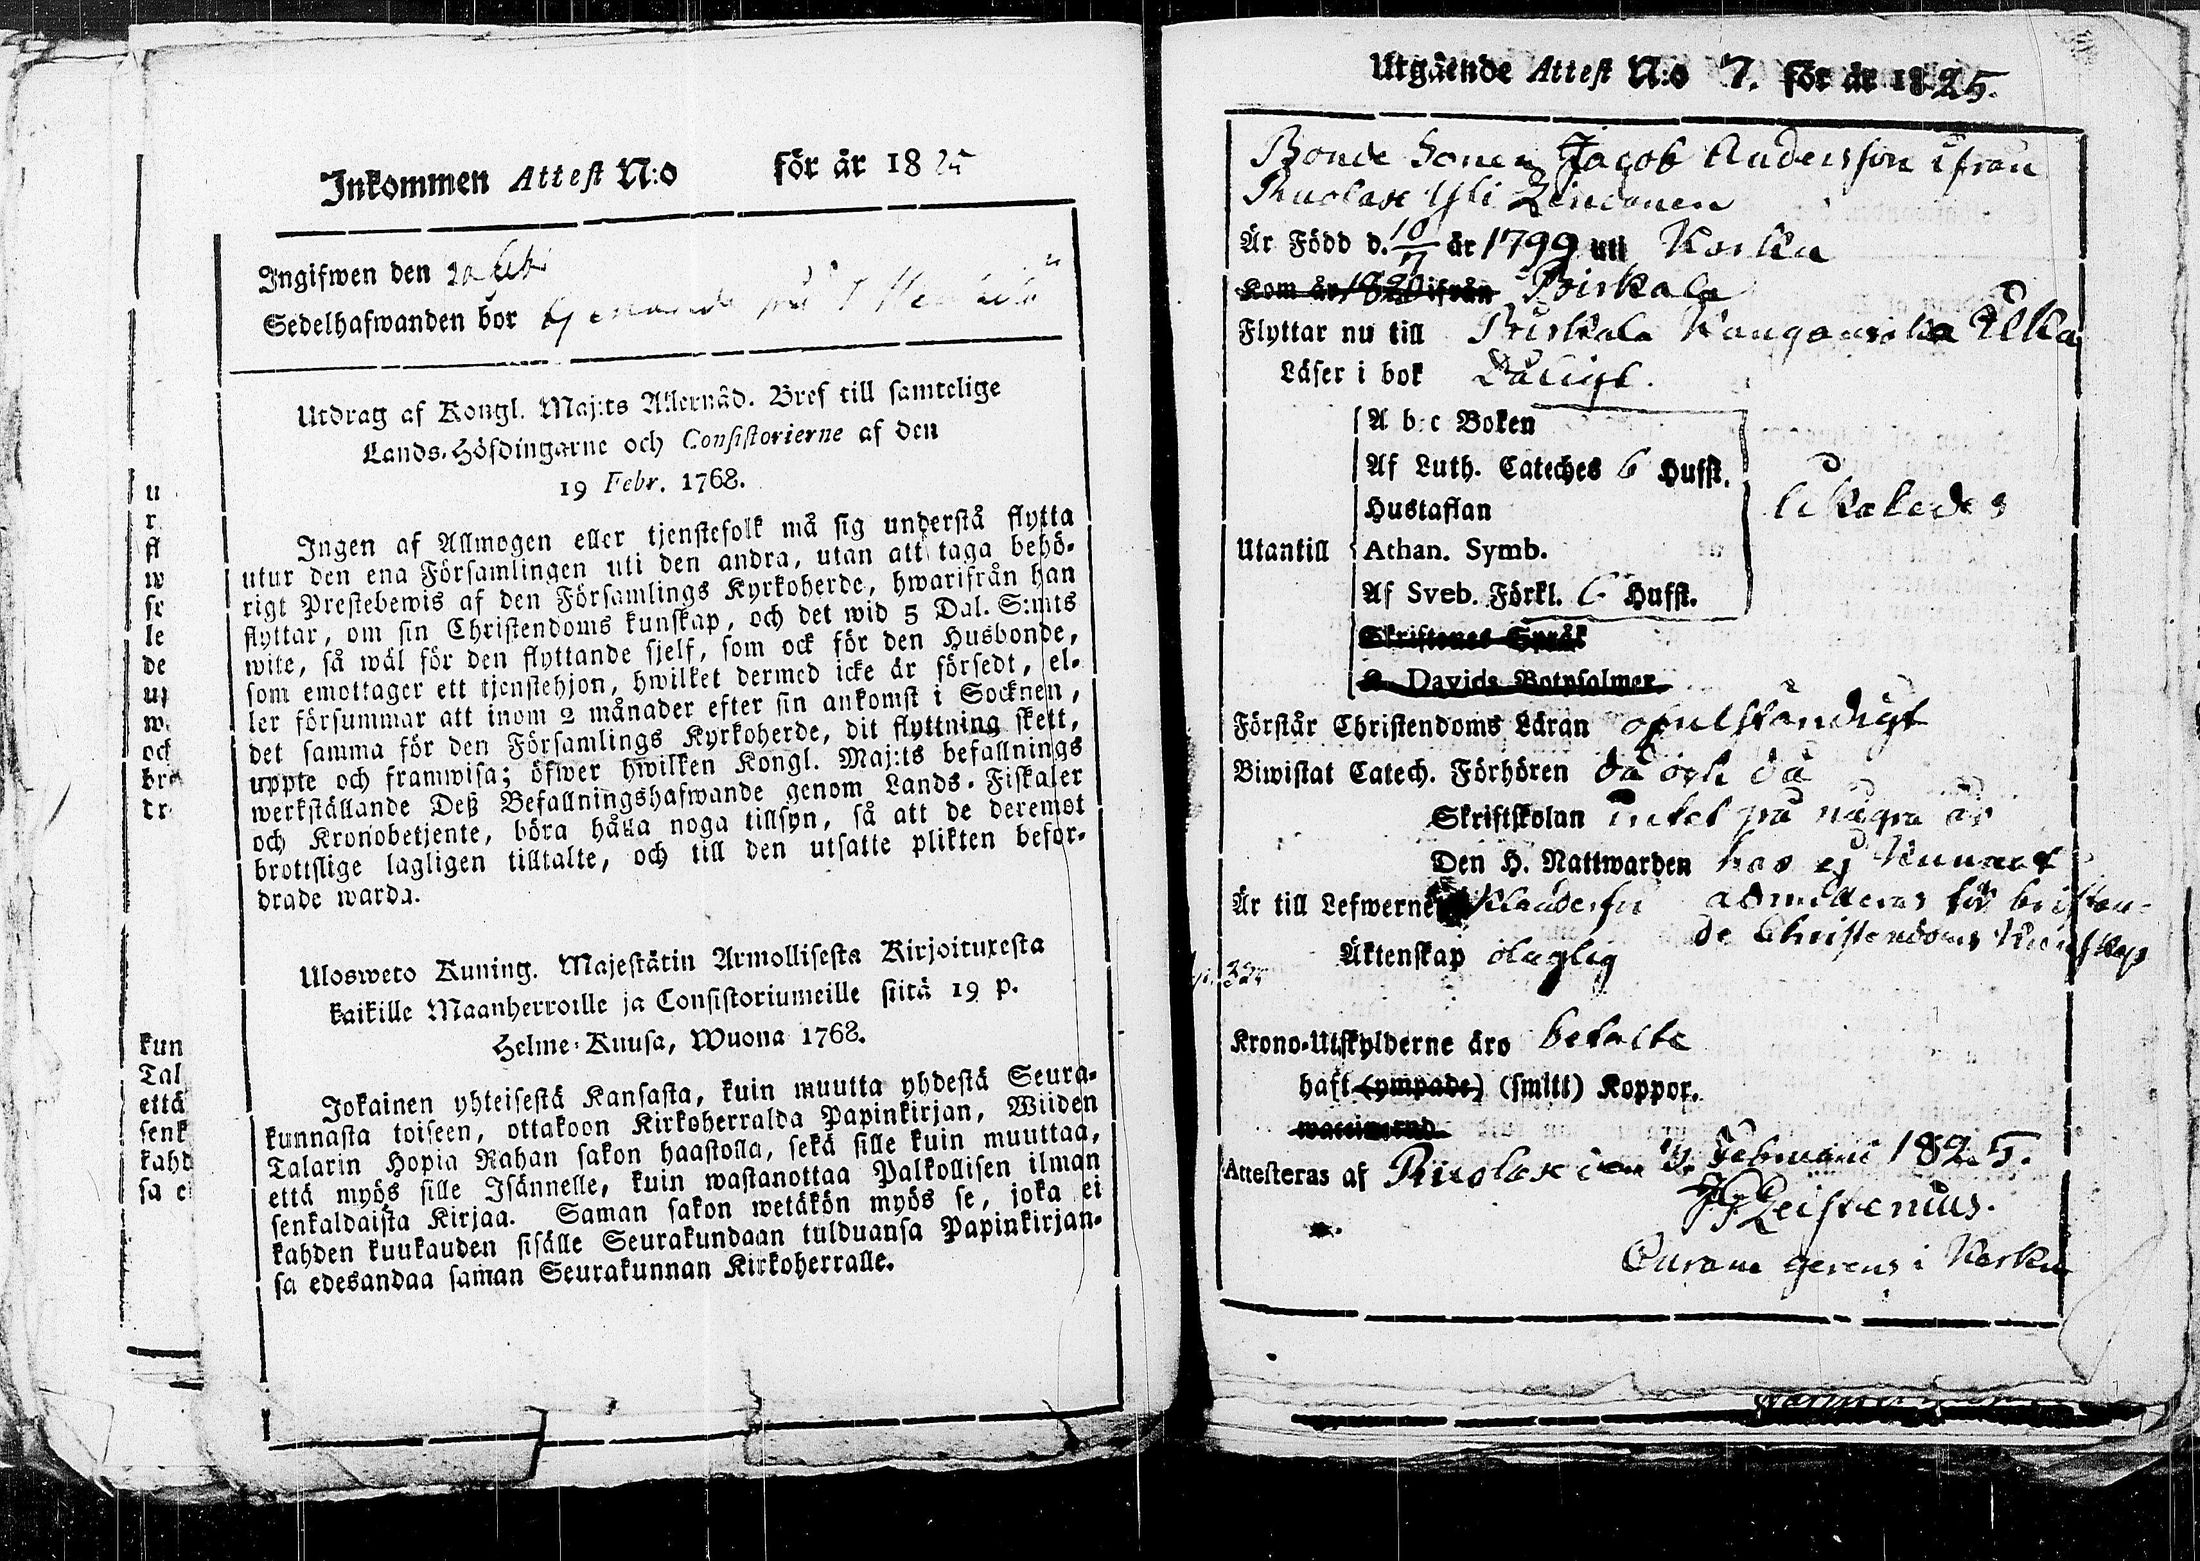 Inkommen Attest N:o för år 1825
Ingifwen den 20 febr
Sedelhafwanden bor tjenande på
Utdrag af Kongl. Maj:ts Allernåd. Bref till samtelige
Lands-Höfdingarne och Consistorierne af den
19 Febr. 1768.
Ingen af Allmogen eller tjenstefolk må sig understå flytta
utur den ena Församlingen uti den andra, utan att taga behö-
rigt Prestebewis af den Församlings Kyrkoherde, hwarifrån han
flyttar, om sin Christendoms kunskap, och det wid 5 Dal. S:mts
wite, så wäl för den flyttande sjelf, som ock för den Husbonde,
som emottager ett tjenstehjon, hwilket dermed icke är försedt, el-
ler försummar att inom 2 månader efter sin ankomst i Socknen,
det samma för den Församlings Kyrkoherde, dit flyttning skett,
uppte och framwisa; öfwer hwilken Kongl. Maj:ts befallnings
werkställande Deß Befallningshafwande genom Lands-Fiskaler
och Kronobetjente, böra hålla noga tillsyn, så att de deremot
brottslige lagligen tilltalte, och till den utsatte plikten befor-
drade warda.
Ulosweto Kuning. Majestätin Armollisesta Kirjoituxesta
kaikille Maanherroille ja Consistoriumeille siitä 19 p.
Helme-Kuusa, Wuona 1768.
Jokainen yhteisestä Kansasta, kuin muutta yhdestä Seura-
kunnasta toiseen, ottakoon Kirkoherralda Papinkirjan, Wiiden
Talarin Hopia Rahan sakon haastolla, sekä sille kuin muuttaa,
että myös sille Isännelle, kuin wastanottaa Palkollisen ilman
senkaldaista Kirjaa. Saman sakon wetäkön myös se, joka ei
kahden kuukauden sisälle Seurakundaan tulduansa Papinkirjan-
sa edesandaa saman Seurakunnan Kirkoherralle.
u
r
fl
w
se
le
de
up
w
och
bro
dr
kun
Tal
että
senk
kahd
sa e
Utgående Attest N:o 7. för år 1825.
Bonde Sonen Jacob Andersson ifrån
Ruolax Yli
Är Född d. 10/7 är 1799 uti Karku
Kom år 1820 ifrån Birkala
Flyttar nu till Birkala Kangansika Elka
Läser i bok Dåligt.
A b c Boken
Af Luth. Cateches 6 Hufst.
Hustaflan
likaledes
Utantill
Athan. Symb.
Af Sveb. Förkl. 6 Hufst.
Skriftenes Språk
D. Davids Botpsalmer
Förstår Christendoms Läran ofulständigt
Biwistat Catech. Förhören då och då
Skriftskolan intet på några år
Den H. Nattwarden har ej kunnat
Är till Lefwerne Klanderfri admitteras för bristan-
de Christendoms Kunskap
Äktenskap olaglig
Krono-Utskylderne äro betalte
haft (ympade) (smitt) Koppor.
waccinerad.
Attesteras af Ruolax den Februarii 1825.
Leistenius.
Curam gerens i Karku